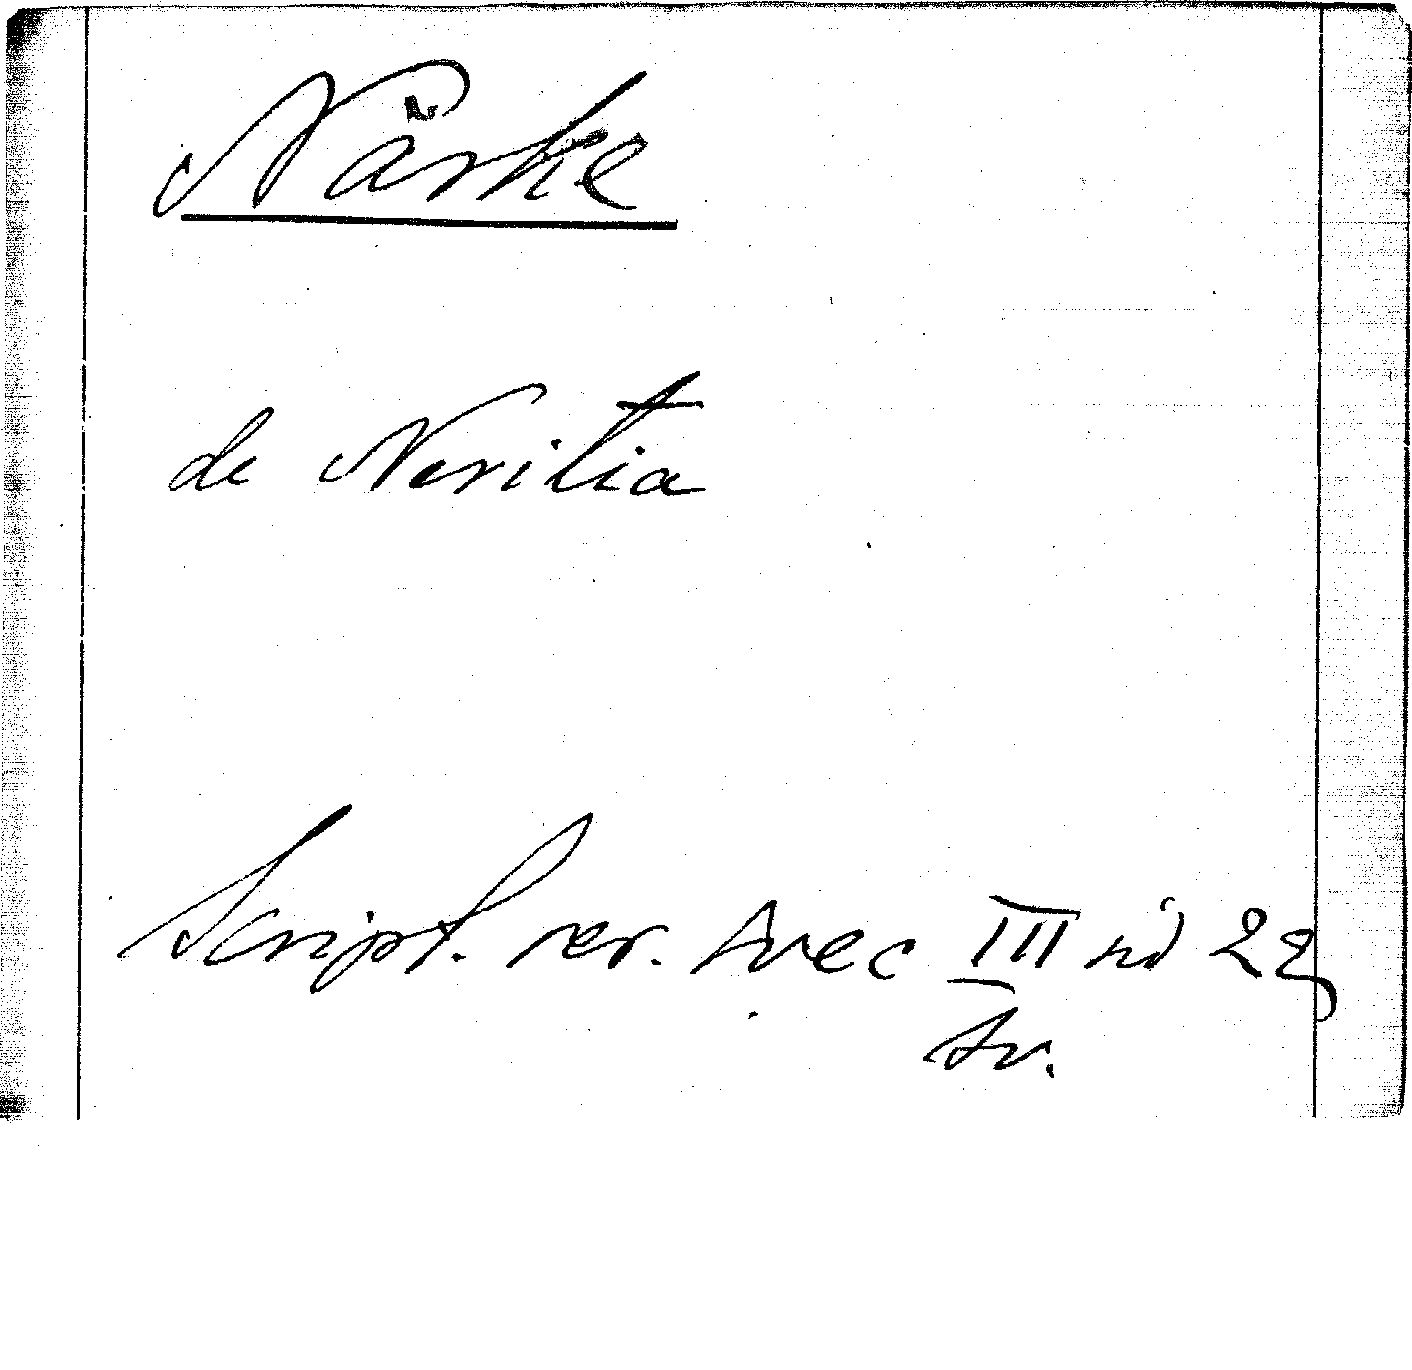 Närke
de Neritia
Script. rer. svec III sid 22
sv.